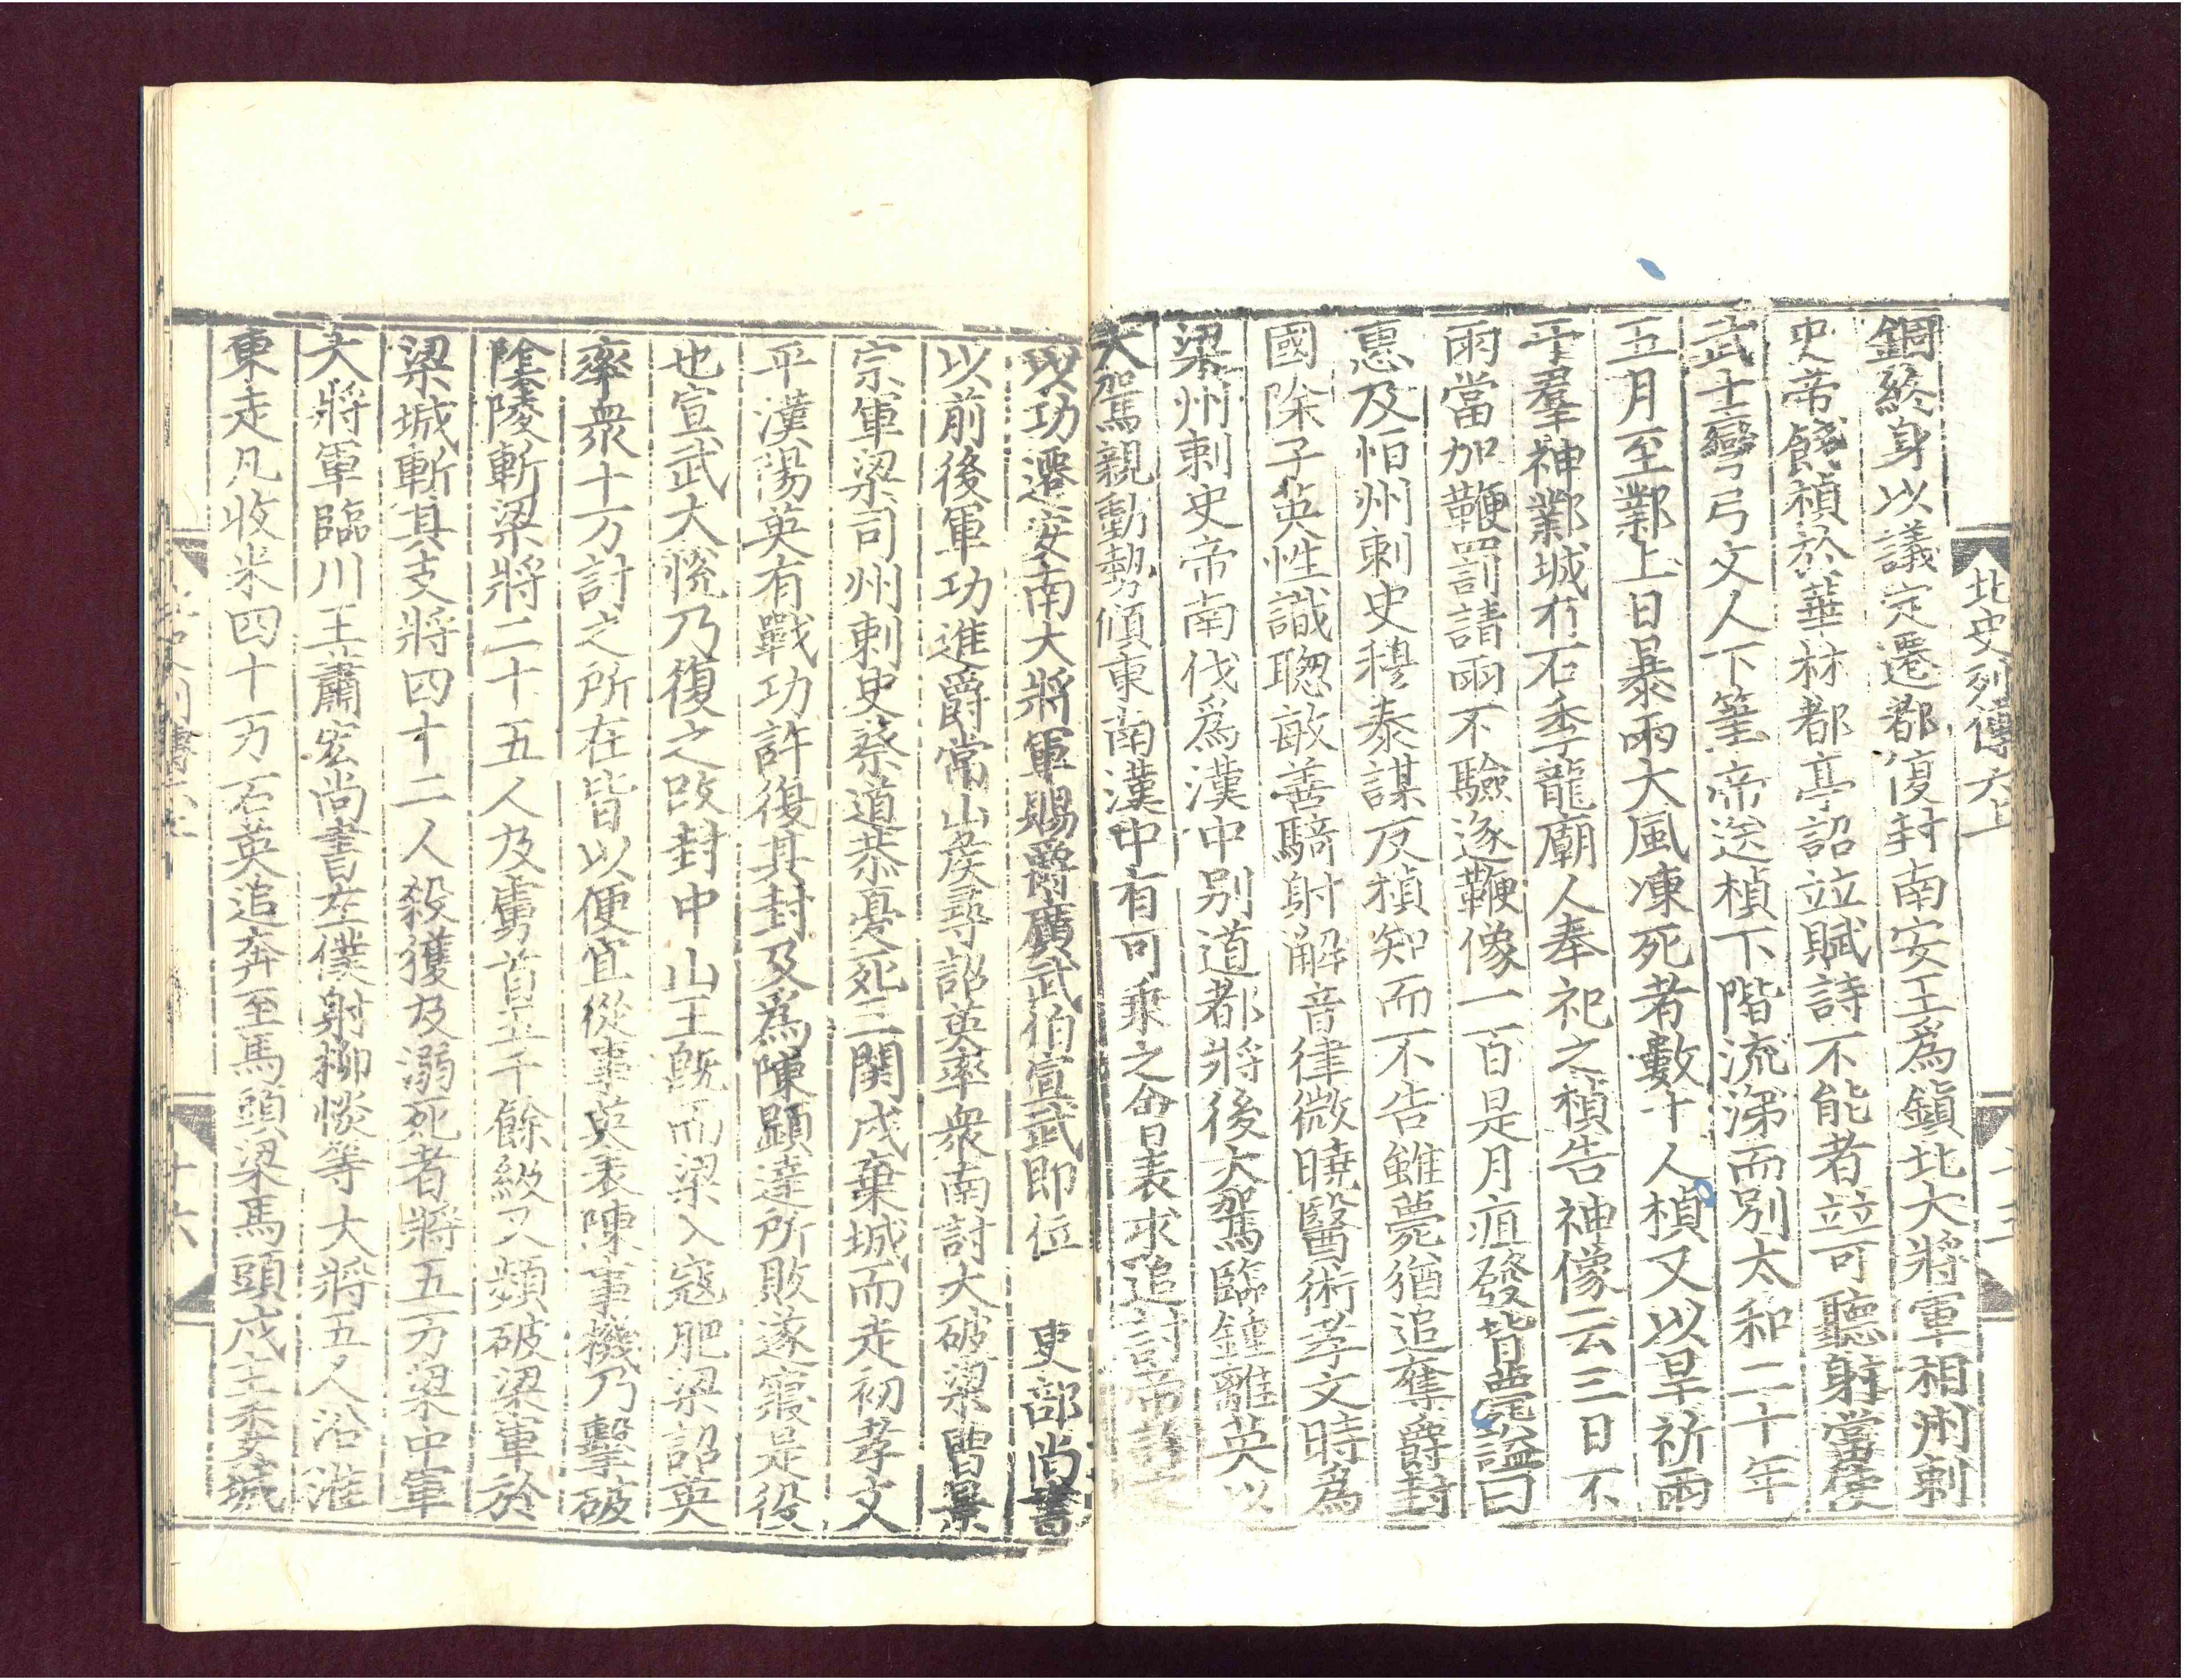 北史列傳六上
錮終身以議定遷都復封南安王爲鎮北大將軍相州刺
史帝餞楨於華林都亭詔竝賦詩不能者竝可聽射當使
武士彎弓文人下筆帝送楨下階流涕而別太和二十年
五月至鄴上日暴雨大風凍死者數十人楨又以旱祈雨
于羣神鄴城有石季龍廟人奉祀之楨告神像云三日不
雨當加鞭罰請雨不驗遂鞭像一百是月疽發背薨謚曰
惠及怕州刺史穆泰謀反楨知而不告雖薨猶追奪爵封
國除子英性識聰敏善騎射解音律微曉醫術孝文時爲
梁州刺史帝南伐爲漢中别道都將後大駕臨鍾離英以
大駕親動勢傾東南漢中有可乗之會表求追討帝許
以功遷安南大將軍賜爵廣武伯宣武即位 吏部尚書
以前後軍功進爵常山侯尋詔英率衆南討大破梁曹景
宗軍梁司州刺史蔡道恭憂死三關戍棄城而走初孝文
平漢陽英有戰功許復其封及爲陳顯達所敗遂寢是役
也宣武大悅乃復之改封中山王旣而梁入寇肥梁詔英
率衆十万討之所在皆以便宜從事英表陳事機乃擊破
陰陵斬梁將二十五人及虜首五千餘級又頻破梁軍於
梁城斬其支將四十二人殺獲及溺死者將五万梁中軍
大將軍臨川王蕭宏尚書左僕射柳惔等大將五人沿淮
東走凡收米四十万石英追奔至馬頭梁馬頭戍主委城
十六